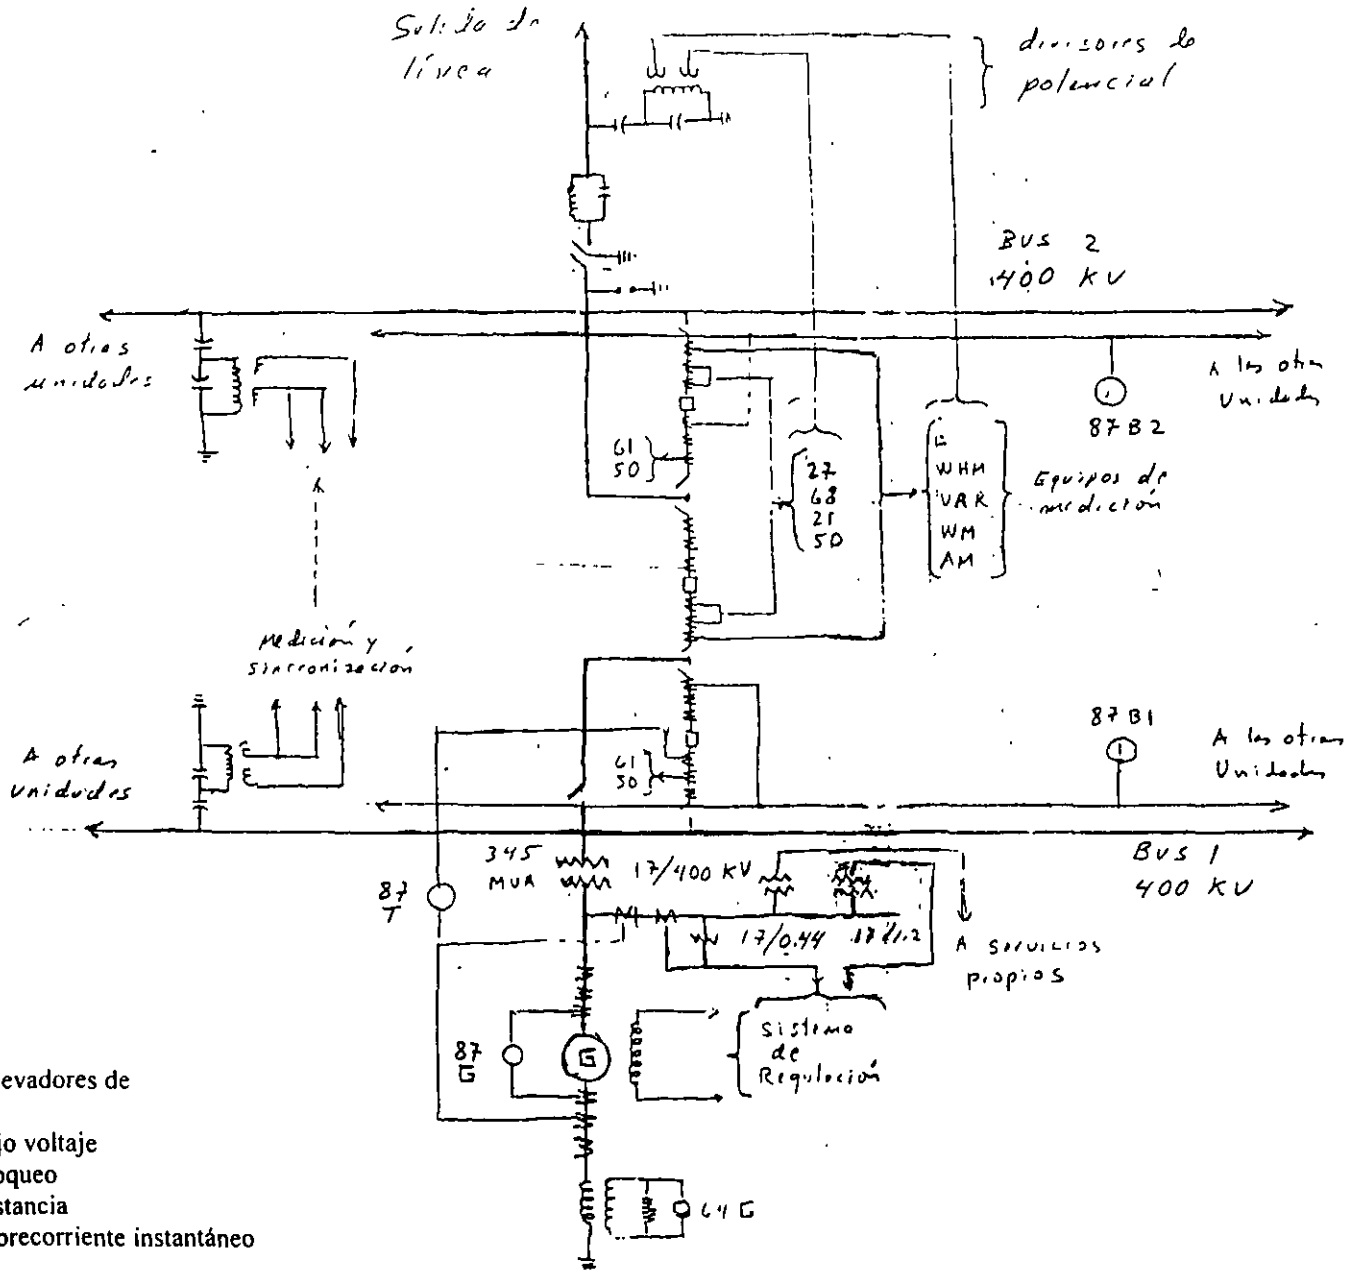 Salida de
línea
divisores de
potencial
BUS 2
400 KV
A otras
unidades
A las otras
Unidades
87 B2
61
50
27
68
21
50
E
WHM
VAR
WM
AM
Equipos de
medición
Medición y
sincronización
87 B1
A las otras
Unidades
A otras
unidades
61
50
BUS 1
400 KV
345
MVA
17/400 KV
87
T
17/0.44
A servicios
propios
87
G
G
Sistema
de
Regulación
64 G
evadores de
jo voltaje
oqueo
stancia
precorriente instantáneo